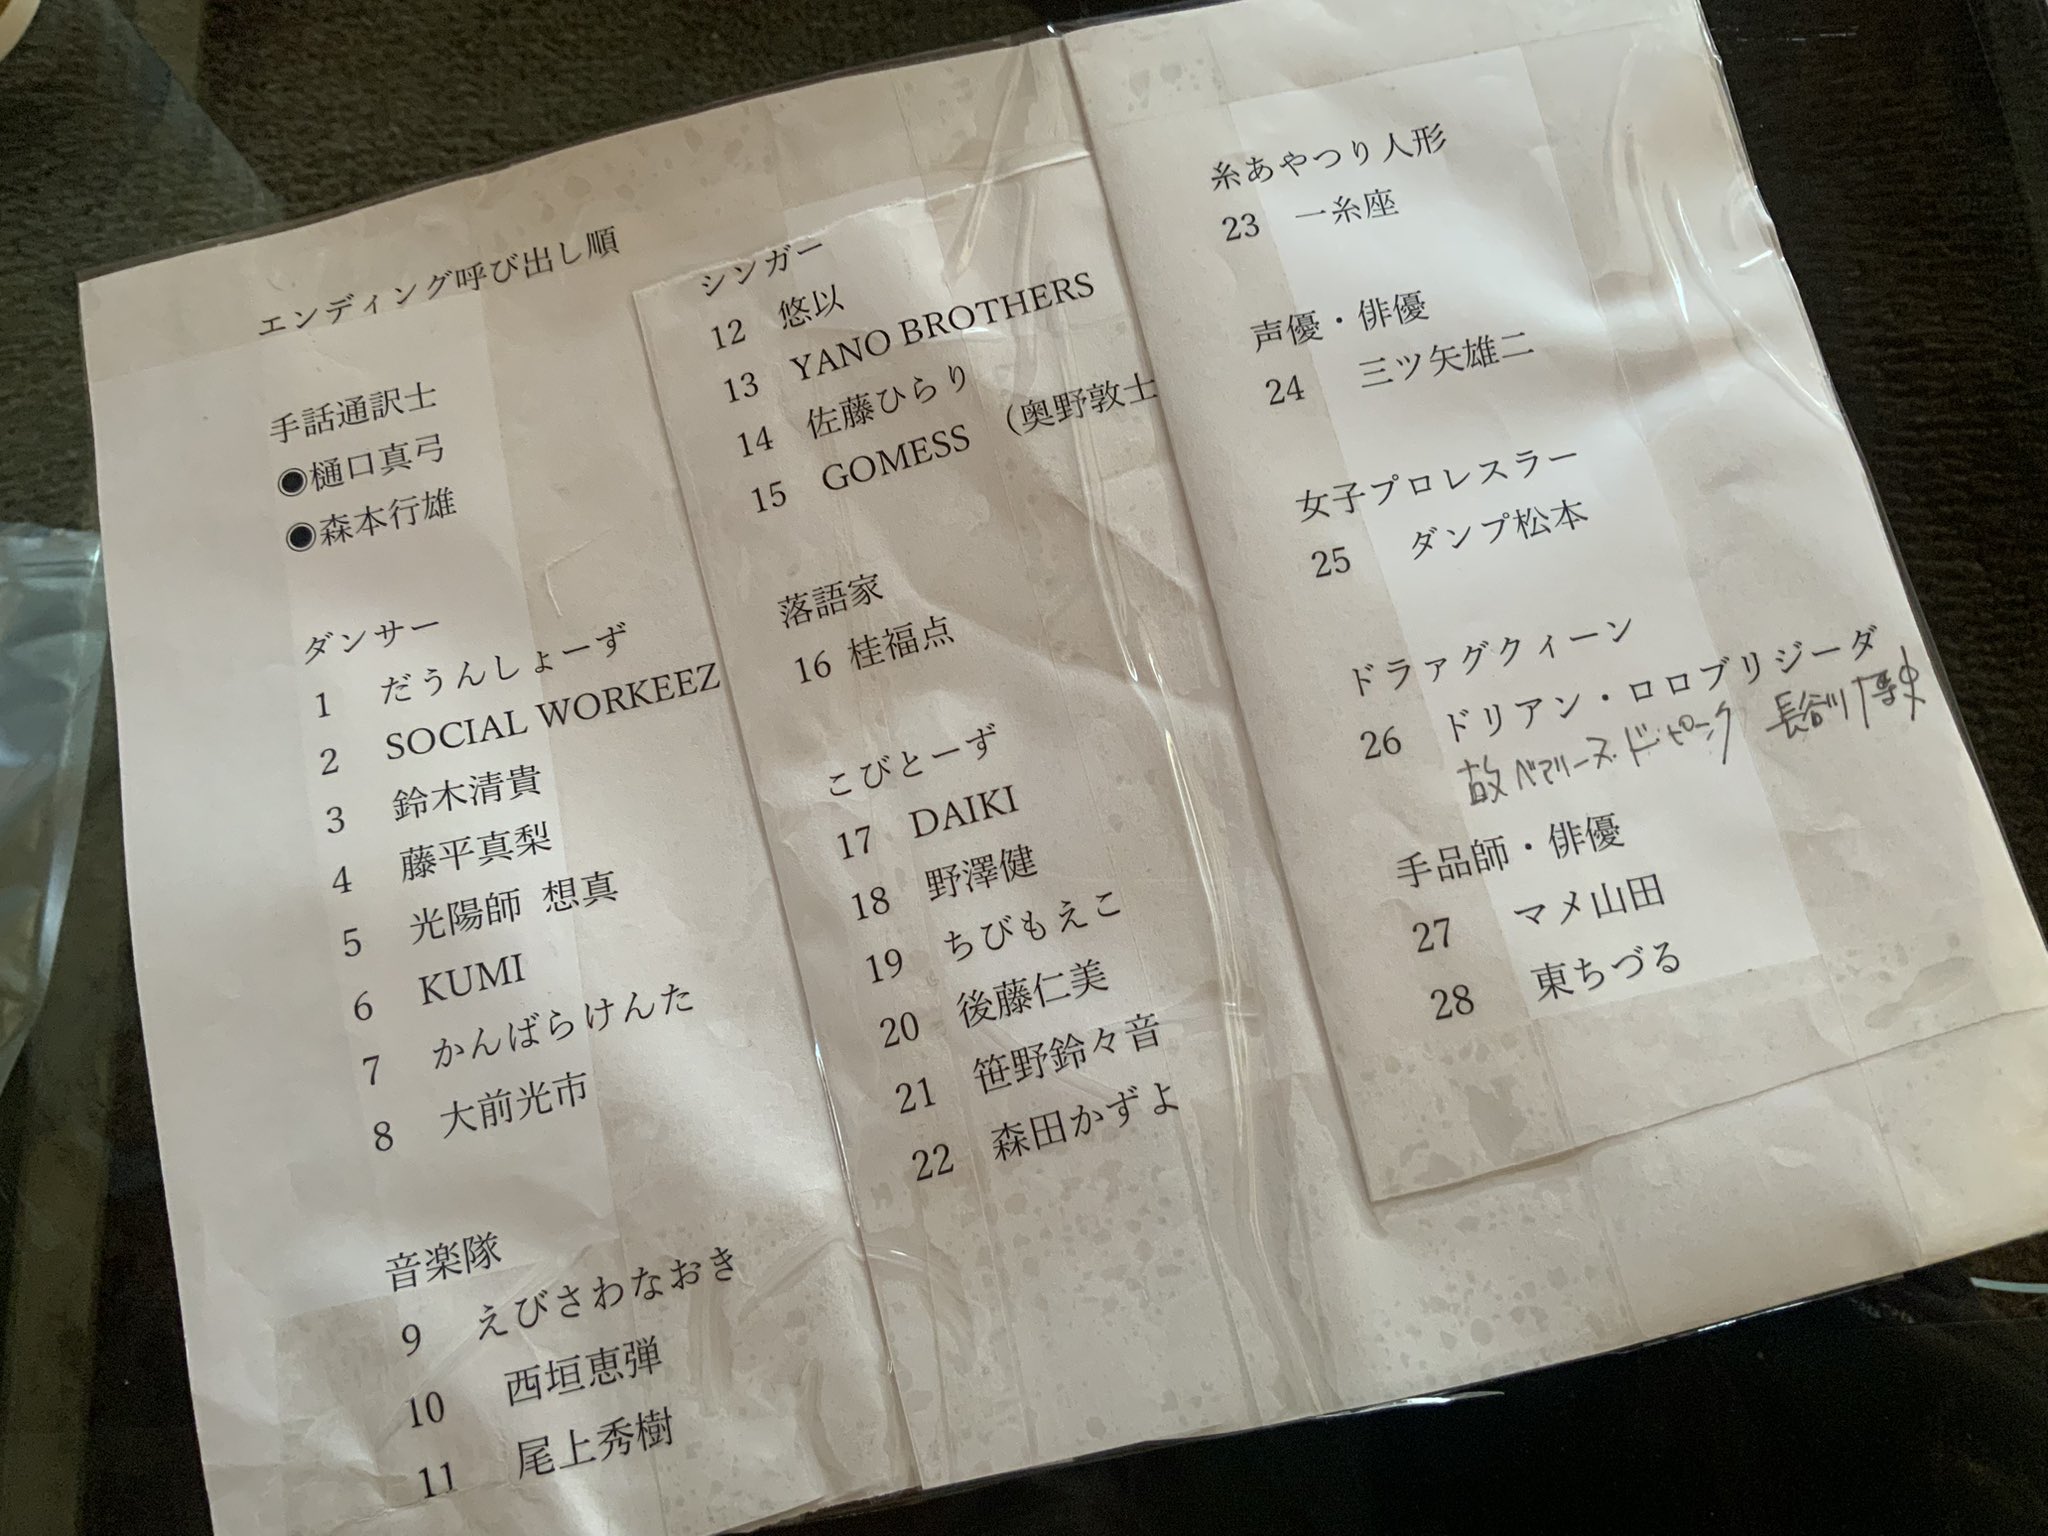 エンディング呼び出し順
手話通訳士
◉樋口真弓
◉森本行雄
ダンサー
1 だうんしょーず
2 SOCIAL WORKEEZ
3 鈴木清貴
4 藤平真梨
5 光陽師 想真
6 KUMI
7 かんばらけんた
8 大前光市
音楽隊
9 えびさわなおき
10 西垣恵弾
11 尾上秀樹
シンガー
12 悠以
13 YANO BROTHERS
14 佐藤ひらり
15 GOMESS （奥野敦士
落語家
16 桂福点
こびとーず
17 DAIKI
18 野澤健
19 ちびもえこ
20 後藤仁美
21 笹野鈴々音
22 森田かずよ
糸あやつり人形
23 一糸座
声優・俳優
24 三ツ矢雄二
女子プロレスラー
25 ダンプ松本
ドラァグクィーン
26 ドリアン・ロロブリジーダ
故 ベアリーヌ・ド・ピンク 長谷川博史
手品師・俳優
27 マメ山田
28 東ちづる